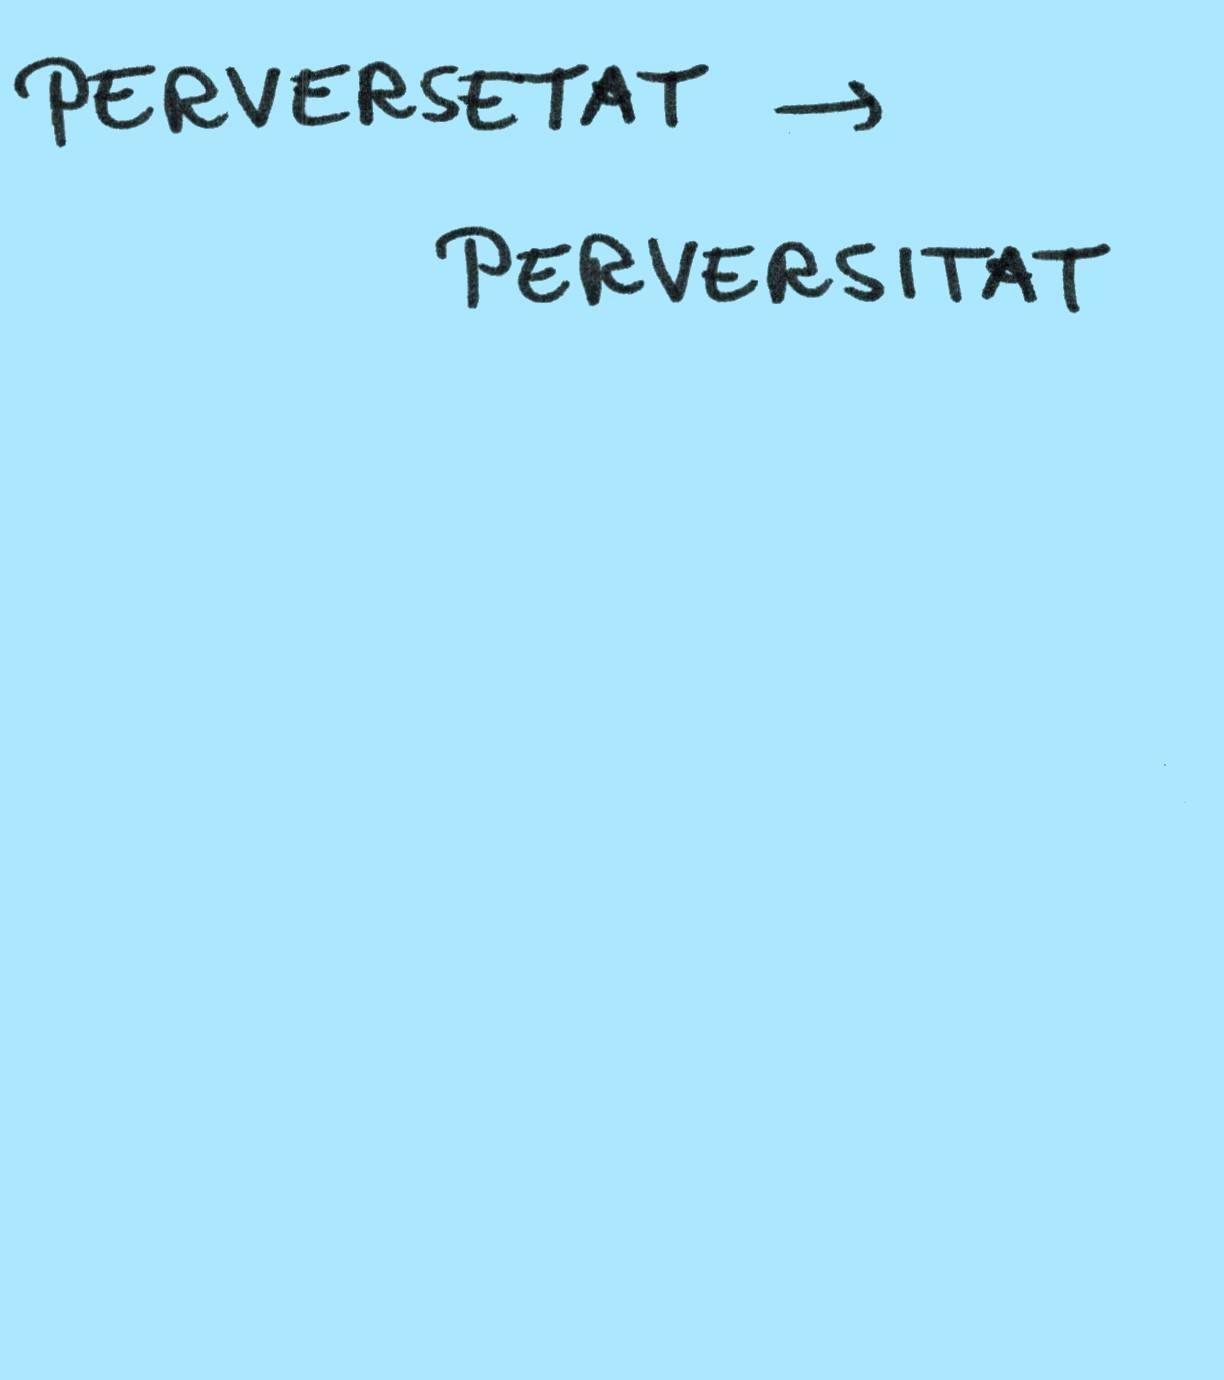 PERVERSETAT →
PERVERSITAT